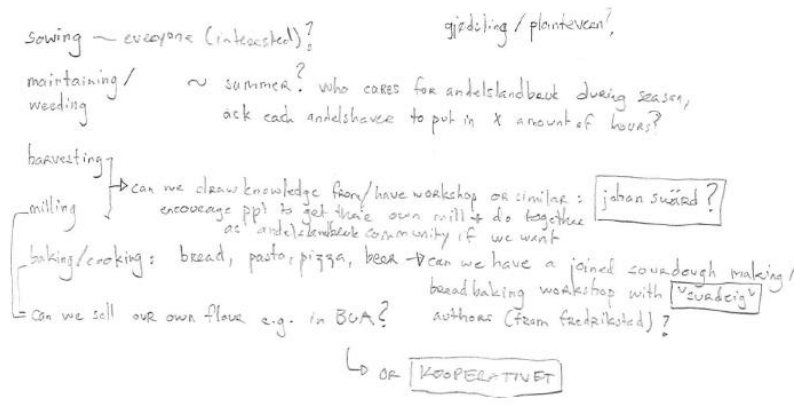 sowing ~ everyone (interested)?
gjødsling / plantevern?
maintaining/
weeding
~ summer? who cares for andelslandbruk during season,
ask each andelshaver to put in x amount of hours?
harvesting
can we draw knowledge from/have workshop or similar: johan swärd?
milling
encourage ppl to get their own mill + do together
as andelslandbruk community if we want
baking/cooking: bread, pasta, pizza, beer → can we have a joined sourdough making/
breadbaking workshop with "surdeig"
authors (from fredrikstad)?
can we sell our own flour e.g. in BUA?
↳ or KOOPERATIVET